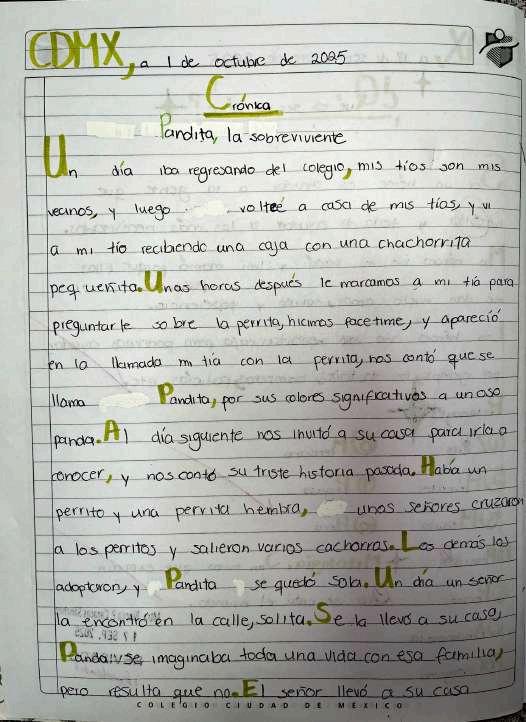 CDMX, a 1 de octubre de 2025
Crónica
Pandita, la sobreviviente
Un día iba regresando del colegio, mis tíos son mis
vecinos, y luego volteé a casa de mis tías, y vi
a mi tío recibiendo una caja con una chachorrita
pequeñita. Unas horas después le marcamos a mi tía para
preguntarle sobre la perrita, hicimos facetime, y apareció
en la llamada m tía con la perrita, nos contó que se
llama Pandita, por sus colores significativos a un oso
panda. Al día siguiente nos invitó a su casa para irla a
conocer, y nos contó su triste historia pasada. Había un
perrito y una perrita hembra, unos señores cruzaron
a los perritos y salieron varios cachorros. Los demás los
adoptaron, y Pandita se quedó sola. Un día un señor
la encontró en la calle, solita. Se la llevó a su casa,
Panda se imaginaba toda una vida con esa familia,
pero resulta que no. El señor llevó a su casa
COLEGIO CIUDAD DE MÉXICO